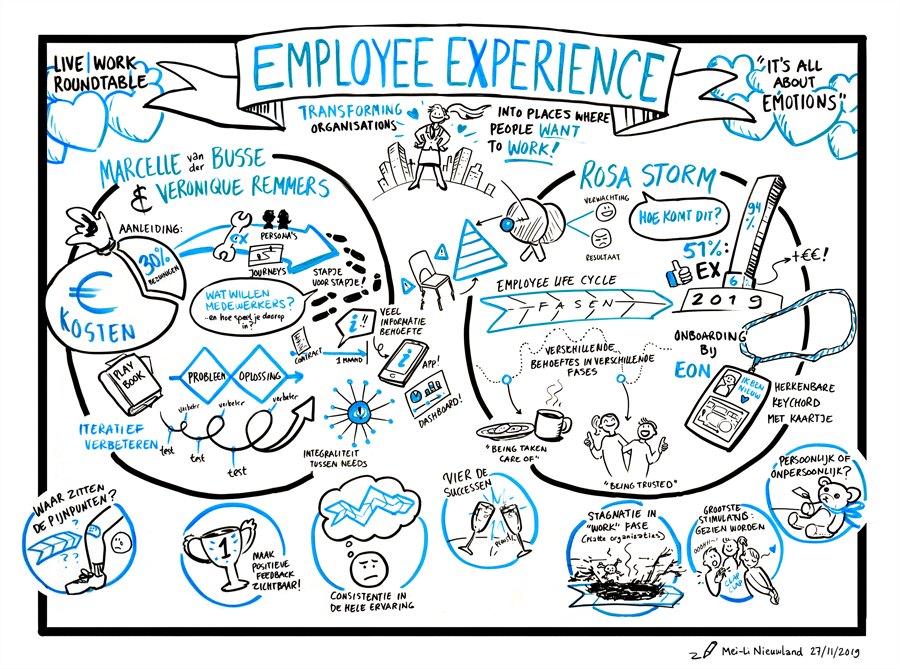 LIVE|WORK
ROUNDTABLE
EMPLOYEE EXPERIENCE
"IT'S ALL
ABOUT
EMOTIONS"
TRANSFORMING
ORGANISATIONS
INTO PLACES WHERE
PEOPLE WANT
TO WORK!
MARCELLE van der BUSSE
& VERONIQUE REMMERS
AANLEIDING:
30%
BEZUINIGEN
€
KOSTEN
EX
PERSONA'S
JOURNEYS
STAPJE
VOOR STAPJE!
WAT WILLEN
MEDEWERKERS?
...en hoe speel je daarop
in?
VEEL
INFORMATIE
BEHOEFTE
i!!
CONTRACT
1 MAAND
i
APP!
DASHBOARD!
PLAY
BOOK
PROBLEEM
OPLOSSING
ITERATIEF
VERBETEREN
verbeter
verbeter
verbeter
test
test
test
INTEGRALITEIT
TUSSEN NEEDS
ROSA STORM
VERWACHTING
RESULTAAT
HOE KOMT DIT?
94%
51%:
EX
6%
+€€!
2019
EMPLOYEE LIFE CYCLE
FASEN
VERSCHILLENDE
BEHOEFTES IN VERSCHILLENDE
FASES
"BEING TAKEN
CARE OF"
"BEING TRUSTED"
ONBOARDING
BIJ
EON
IK BEN
NIEUW
HERKENBARE
KEYCHORD
MET KAARTJE
WAAR ZITTEN
DE PIJNPUNTEN?
? ?
?
1
MAAK
POSITIEVE
FEEDBACK
ZICHTBAAR!
CONSISTENTIE IN
DE HELE ERVARING
VIER DE
SUCCESSEN
STAGNATIE IN
"WORK" FASE
(platte organisaties)
GROOTSTE
STIMULANS:
GEZIEN WORDEN
OOOH!!
CLAP
CLAP
PERSOONLIJK OF
ONPERSOONLIJK?
Mei-Li Nieuwland 27/11/2019